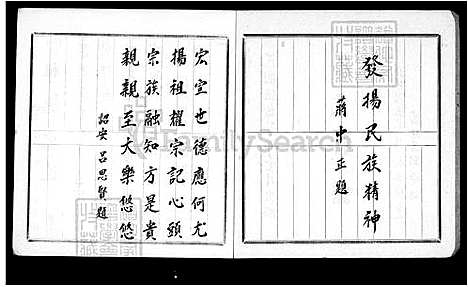 發揚民族精神
蔣中正題
宏宣世德應何尤
揚祖耀宗記心頭
宗族融知方是貴
親親至大樂悠悠
詔安 呂思賢題
FamilySearch